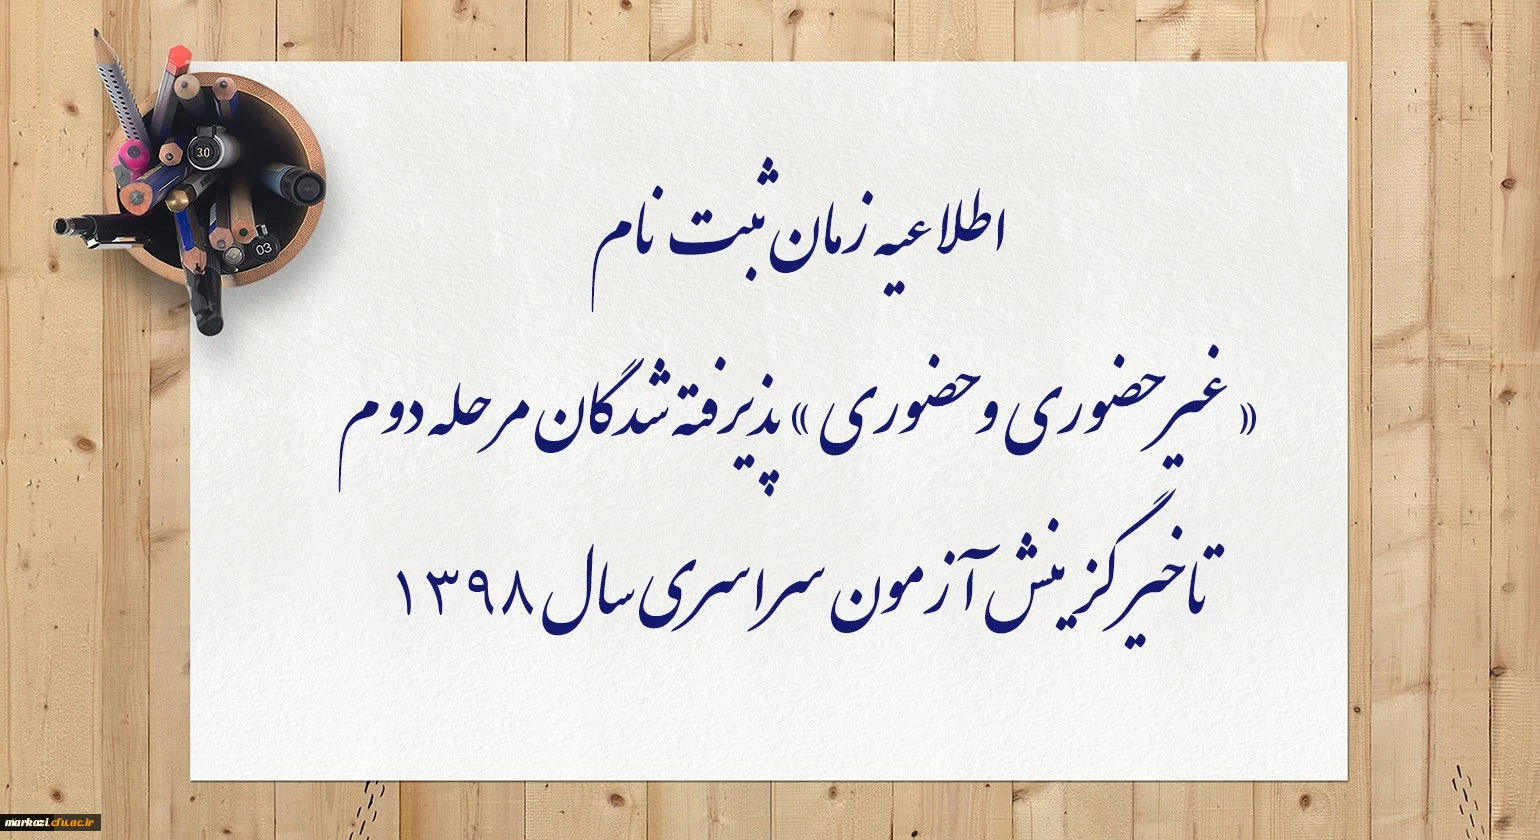 اطلاعیه زمان ثبت نام
« غیر حضوری و حضوری » پذیرفته شدگان مرحله دوم
تاخیر گزینش آزمون سراسری سال ۱۳۹۸
3.0
03
markazi.cfu.ac.ir